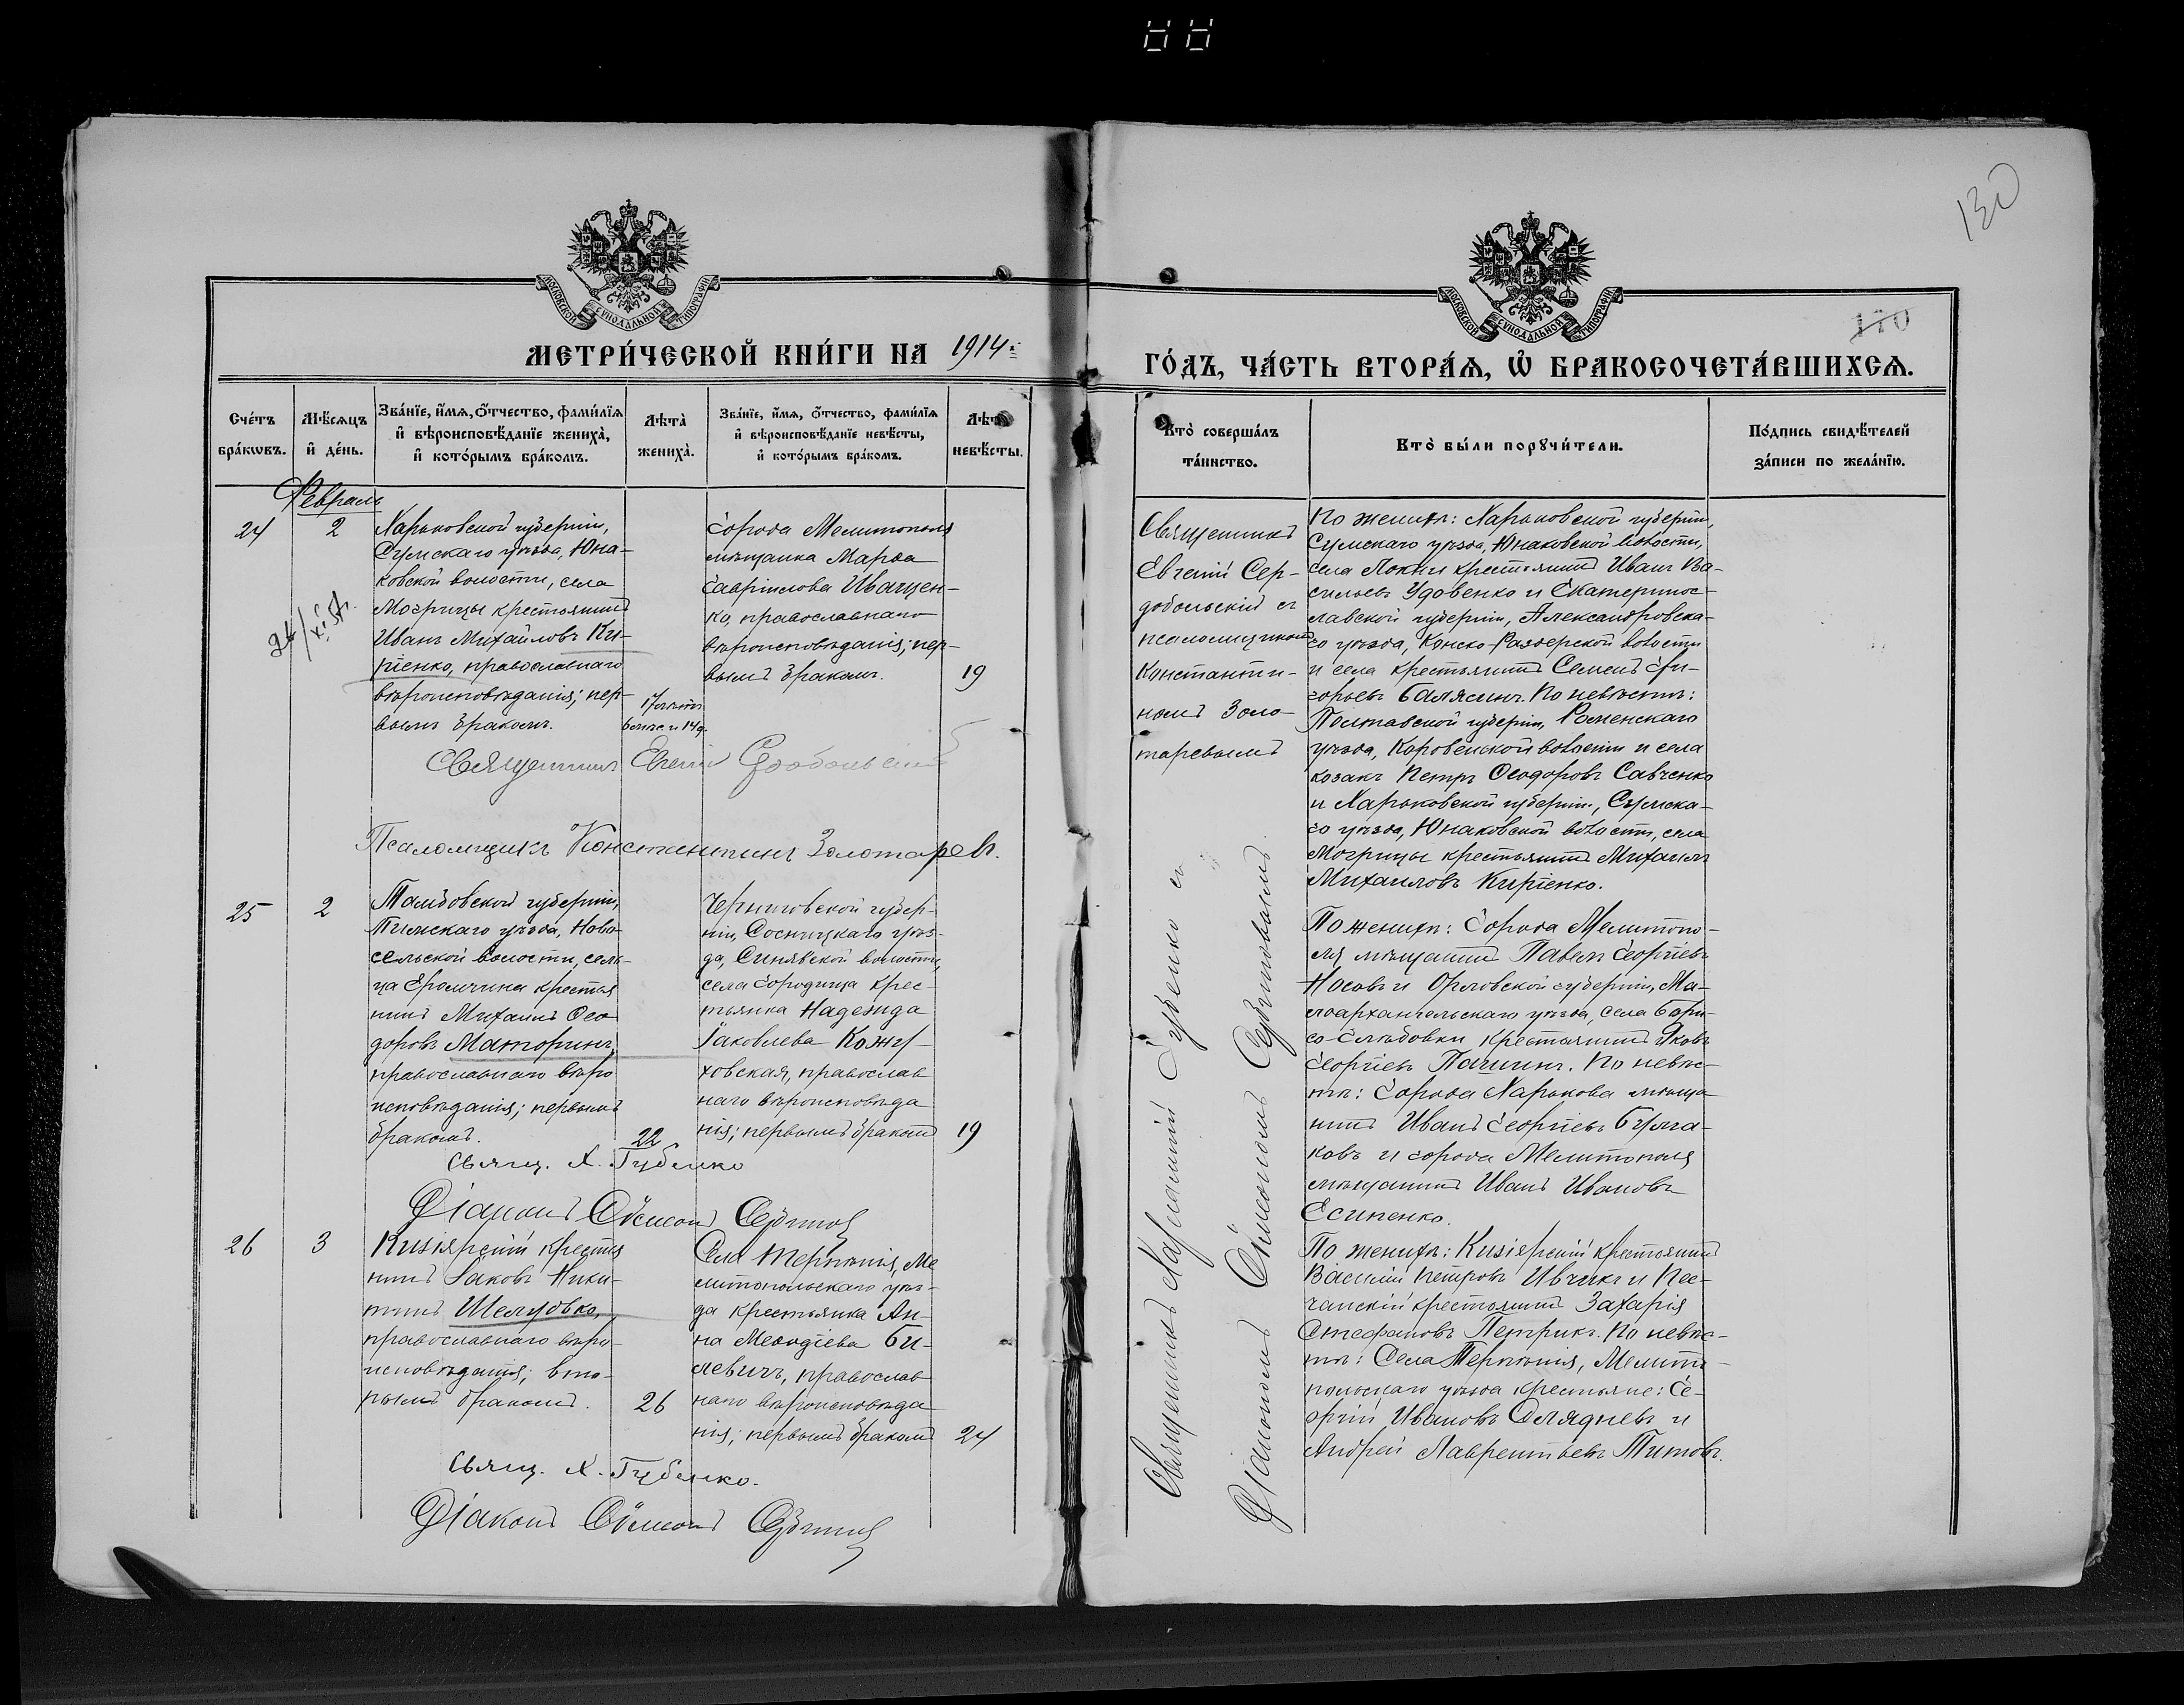 130
170
МОСКОВСКОЙ СУНОДАЛЬНОЙ ТИПОГРАФІИ
МОСКОВСКОЙ СУНОДАЛЬНОЙ ТИПОГРАФІИ
МЕТРИ́ЧЕСКОЙ КНИ́ГИ НА 1914 г.
ГО́ДЪ, ЧА́СТЬ ВТОРА́Я, Ѽ БРАКОСОЧЕТА́ВШИХСЯ.
Сче́тъ бра́кѡвъ.
Мѣ́сяцъ и҆ де́нь.
Зва́нїе, и҆́мя, ѻ҆́тчество, фами́лїя
и҆ вѣроисповѣ́данїе жениха̀,
и҆ кото́рымъ бра́комъ.
Лѣта̀ жениха̀.
Зва́нїе, и҆́мя, ѻ҆́тчество, фами́лїя
и҆ вѣроисповѣ́данїе невѣ́сты,
и҆ кото́рымъ бра́комъ.
Лѣта̀ невѣ́сты.
Кто̀ соверша́лъ та́инство.
Кто̀ бы́ли порꙋчи́тели.
По́дпись свидѣ́телей за́писи по жела́нїю.
Февраль
24
2
Харьковской губерніи,
Сумскаго уѣзда, Юна-
ковской волости, села
Могрицы крестьянинъ
Иванъ Михайловъ Ки-
ріенко, православнаго
вѣроисповѣданія; пер-
вымъ бракомъ.
17 лѣтъ
6 мѣс. и 14 д.
Города Мелитополя
мѣщанка Марѳа
Гавріилова Иващен-
ко, православнаго
вѣроисповѣданія; пер-
вымъ бракомъ.
19
Священникъ Евгеній Сердобольскій
Псаломщикъ Константинъ Золотаревъ.
Священникъ
Евгеній Сер-
добольскій съ
псаломщикомъ
Константи-
номъ Золо-
таревымъ
По женихѣ: Харьковской губерніи,
Сумскаго уѣзда, Юнаковской волости,
села Локни крестьянинъ Иванъ Ва-
сильевъ Удовенко и Екатеринос-
лавской губерніи, Александровска-
го уѣзда, Конско-Раздорской волости
и села крестьянинъ Семенъ Гри-
горьевъ Балясинъ. По невѣстѣ:
Полтавской губерніи, Роменскаго
уѣзда, Коровенской волости и села
козакъ Петръ Ѳеодоровъ Савченко
и Харьковской губерніи, Сумска-
го уѣзда, Юнаковской волости, села
Могрицы крестьянинъ Михаилъ
Михаиловъ Киріенко.
25
2
Тамбовской губерніи,
уѣзда, Ново-
сельской волости, сель-
ца крестья
нинъ Михаилъ Ѳео
доровъ Маторинъ,
православнаго вѣро
исповѣданія; первымъ
бракомъ.
22
Черниговской губер-
ніи, Сосницкаго уѣз-
да, Синявской волости,
села Городища крес-
тьянка Надежда
Іаковлева Кожу-
ховская, православ
наго вѣроисповѣда
нія; первымъ бракомъ
19
Свящ. Х. Губенко
Діаконъ Сѵмеонъ
По женихѣ: Города Мелитопо-
ля мѣщанинъ Павелъ Георгіевъ
Носовъ и Орловской губерніи, Ма-
лоархангельскаго уѣзда, села Бори-
со-Глѣбовки крестьянинъ Яковъ
Георгіевъ Пашинъ. По невѣс-
тѣ: Города Харькова мѣща
нинъ Иванъ Георгіевъ Булга-
ковъ и города Мелитополя
мѣщанинъ Иванъ Ивановъ
Есипенко.
26
3
Кизіярскій крестья
нинъ Іаковъ Ники-
тинъ Шелудько,
православнаго вѣро-
исповѣданія; вто-
рымъ бракомъ.
26
Села Терпѣнія, Ме
литопольскаго уѣз-
да крестьянка Ан-
на Меѳодіева Би-
левичъ, православ
наго вѣроисповѣда
нія; первымъ бракомъ
24
Свящ. Х. Губенко.
Діаконъ Сѵмеонъ
Священникъ Губенко съ
Діакономъ Сѵмеономъ
По женихѣ: Кизіярскій крестьянинъ
Василій Петровъ Ивчикъ и Пес-
чанскій крестьянинъ Захарія
Стефановъ Петрикъ. По невѣс-
тѣ: Села Терпѣнія, Мелито-
польскаго уѣзда крестьяне: Ге-
оргій Ивановъ Сляднев и
Андрей Лаврентьевъ Титовъ.